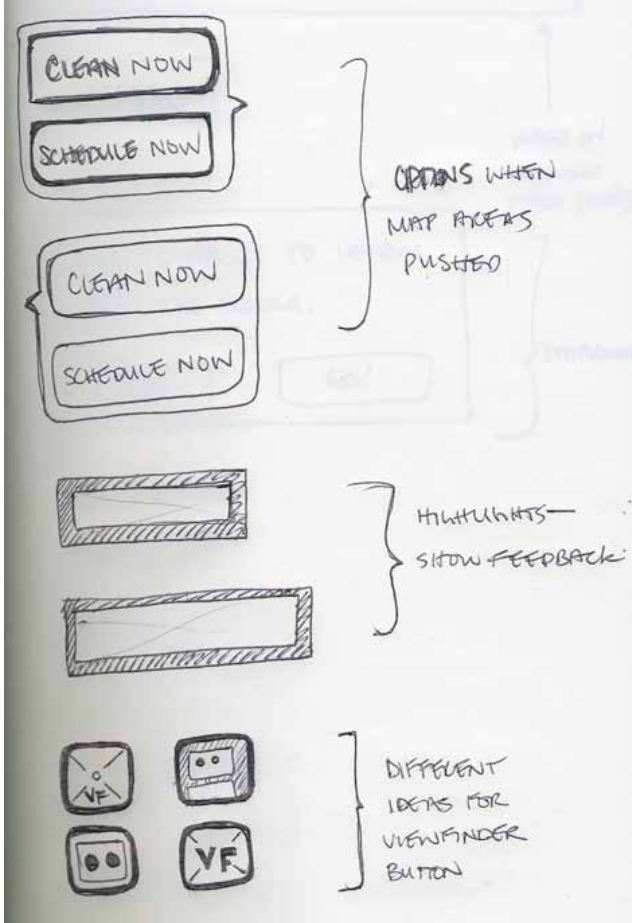 CLEAN NOW
SCHEDULE NOW
CLEAN NOW
SCHEDULE NOW
OPTIONS WHEN
MAP AREAS
PUSHED
HIGHLIGHTS—
SHOW FEEDBACK
VF
VF
DIFFERENT
IDEAS FOR
VIEWFINDER
BUTTON